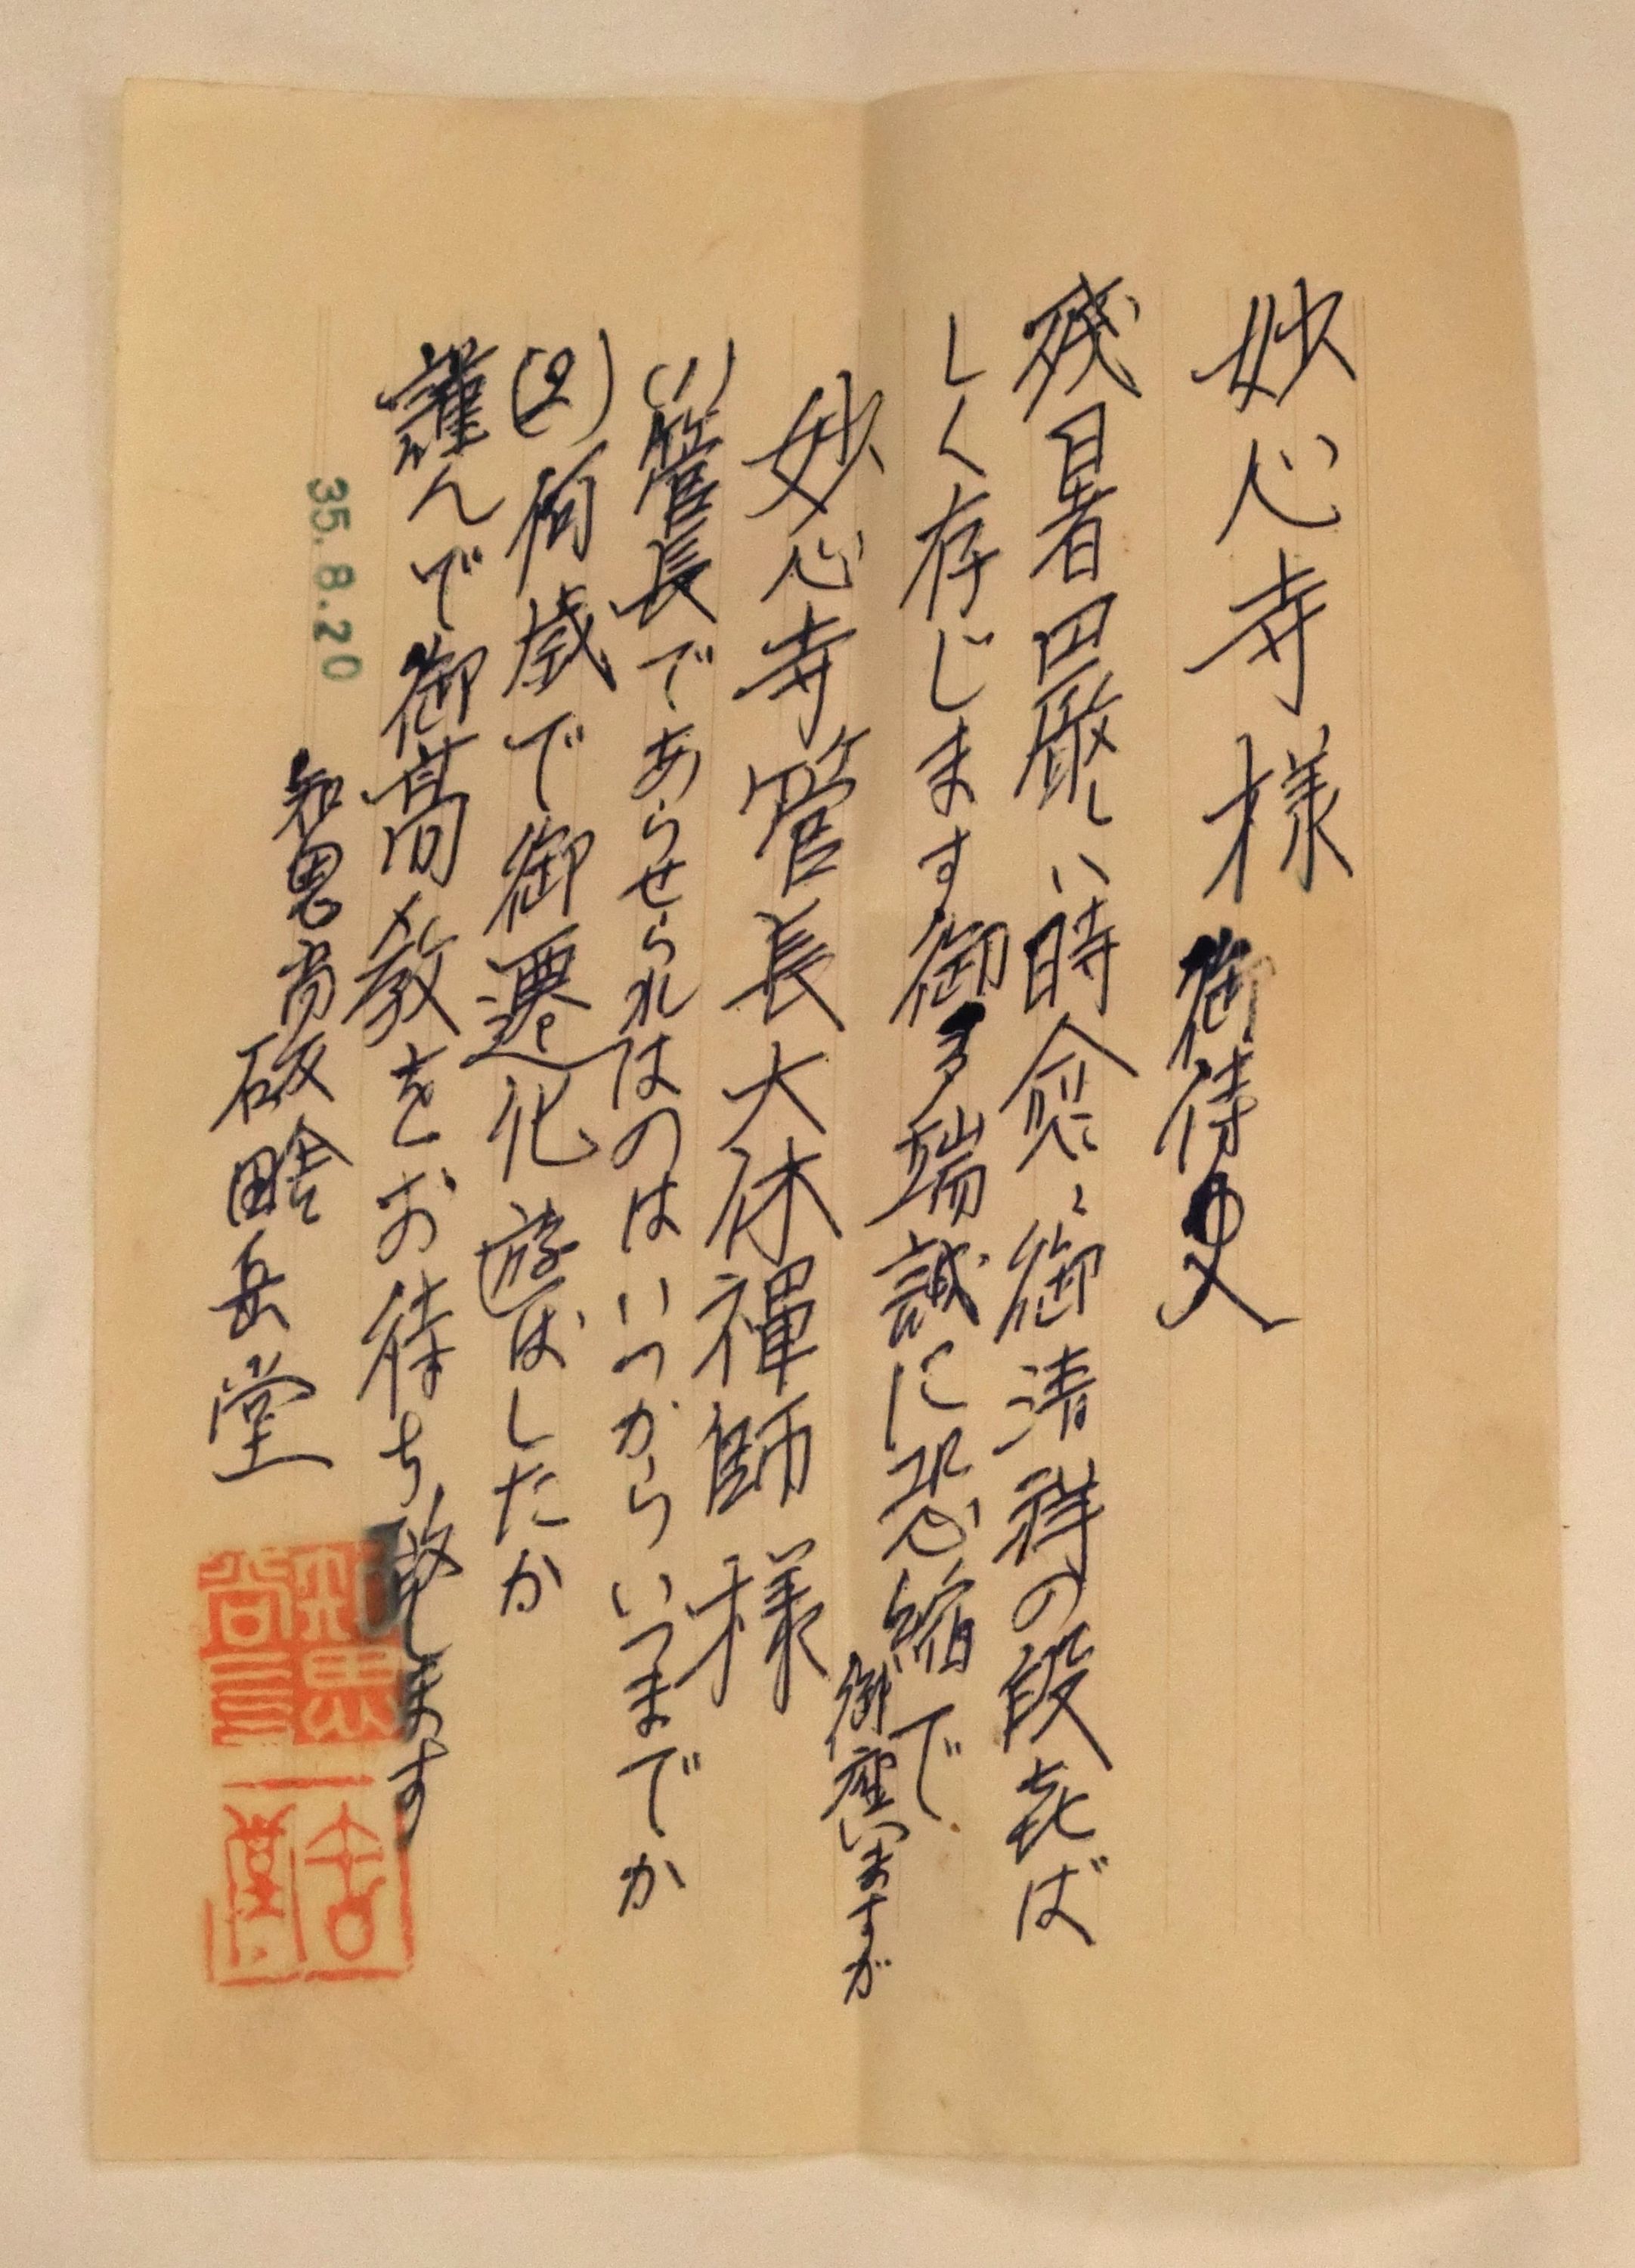 妙心寺様 御侍史
残暑厳しい時愈々御清祥の段喜ば
しく存じます御多端誠に恐縮で
御座いますが
妙心寺管長大休禅師様
(1)管長であらせられはのはいつからいつまでか
(2)何歳で御遷化遊ばしたか
謹んで御高教をお待ち致します
35.8.20
岳堂